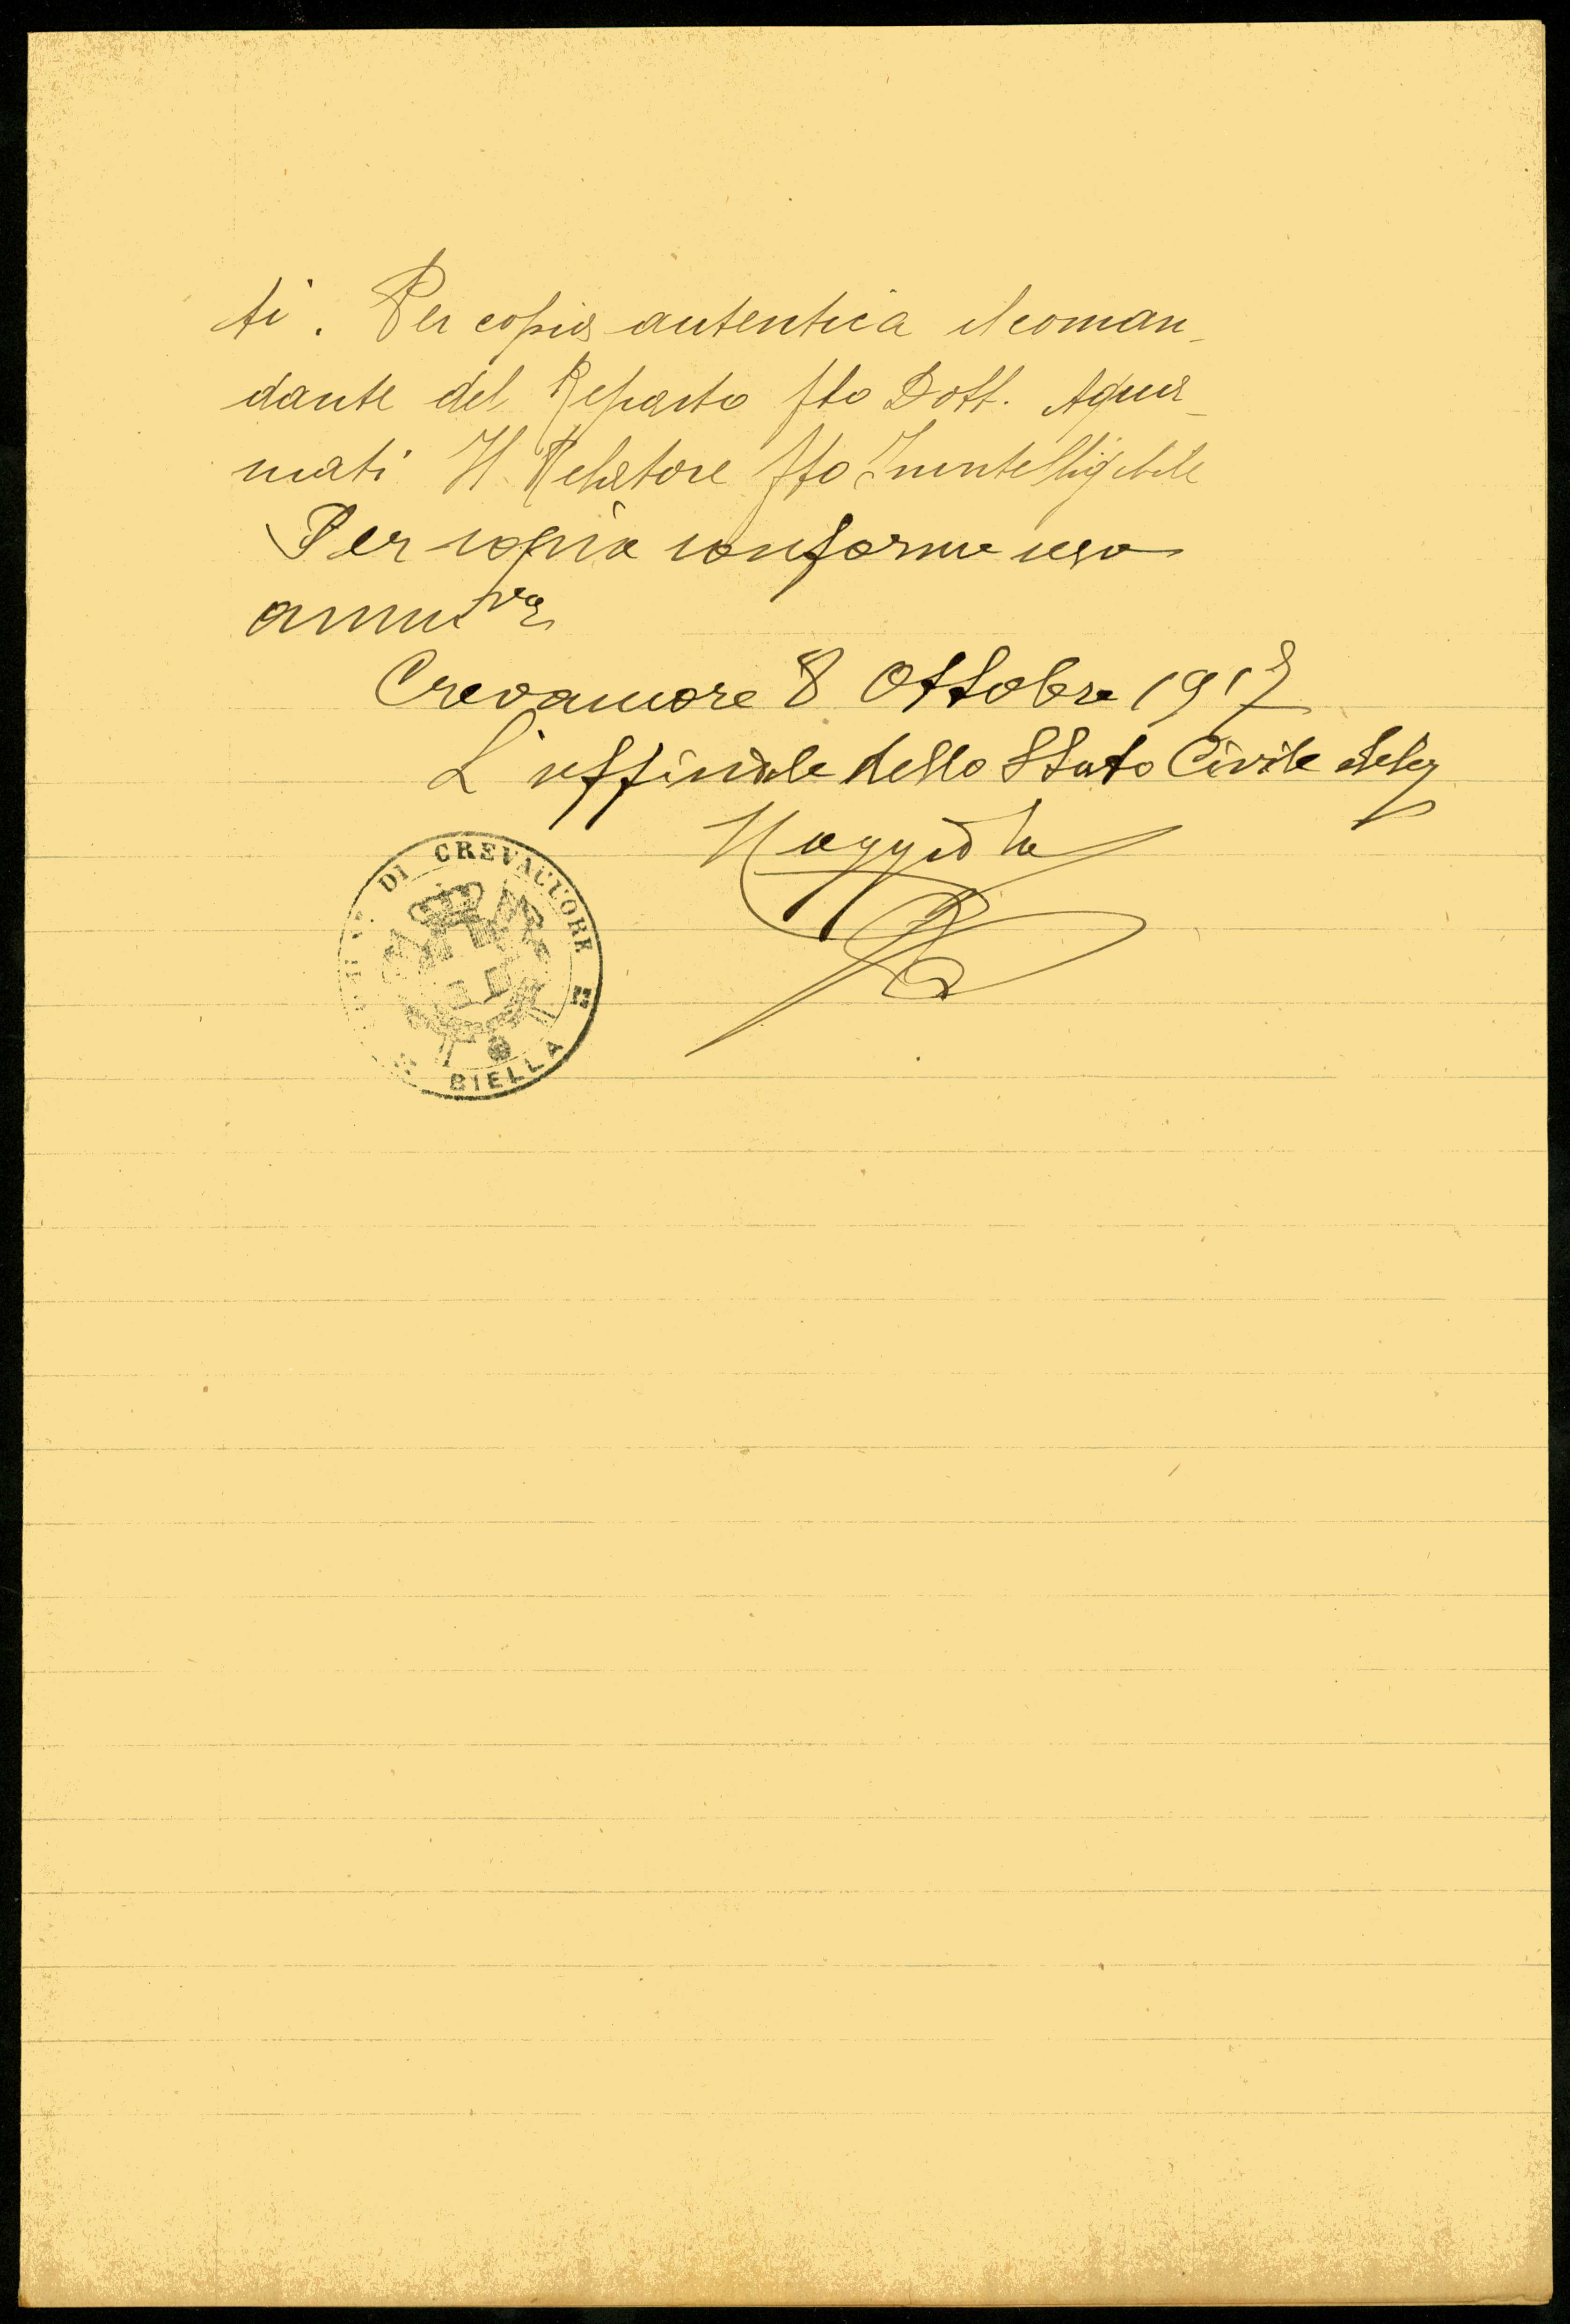 ti. Per copia autentica il coman_
dante del Reparto fto Dott. Aqua_
mati Il Relatore fto Inintelligibile
Per copia conforme uso
ammtva
Crevacuore 8 Ottobre 1917
L'uffiziale dello Stato Civile deleg
DI CREVACUORE
BIELLA